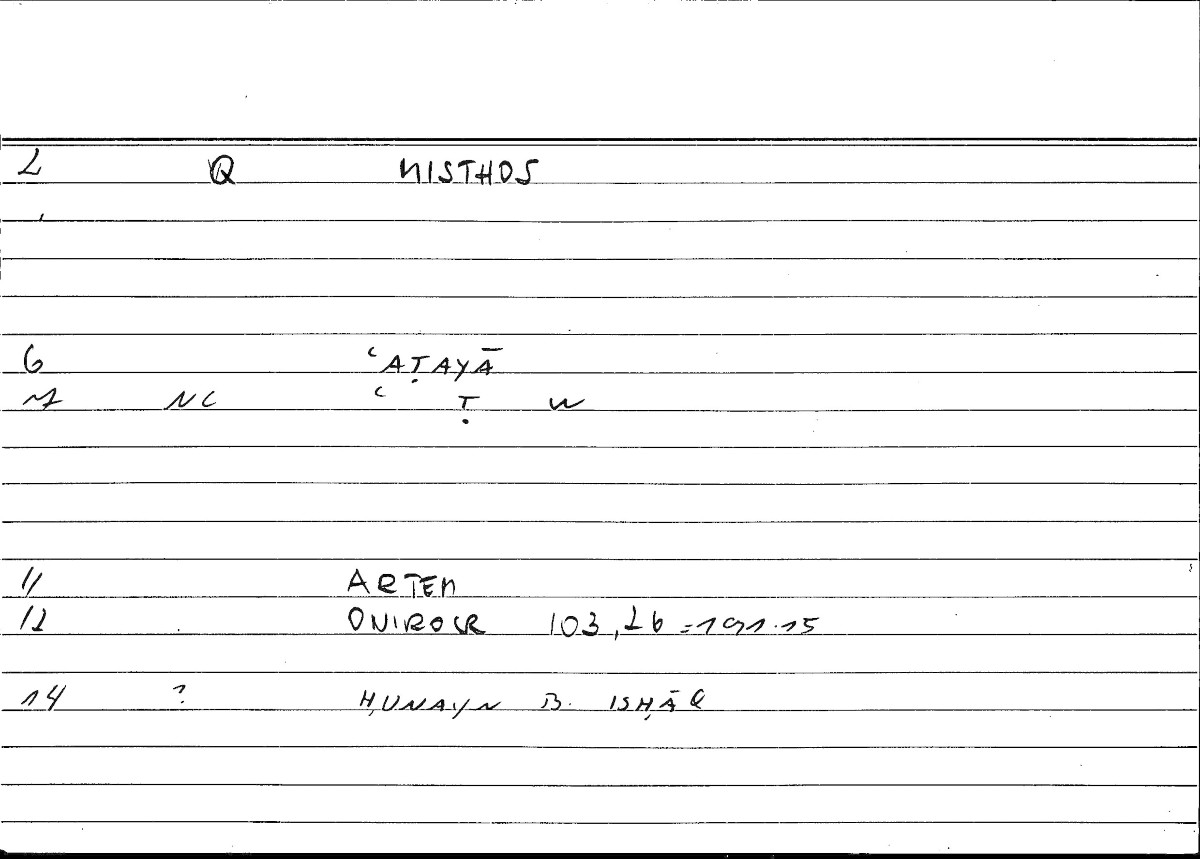 2 Q MISTHOS
6 ʿAṬAYĀ
7 NC ʿ Ṭ W
11 ARTEM
12 ONIROCR 103,26 = 191.15
14 ? ḤUNAYN B. ISḤĀQ